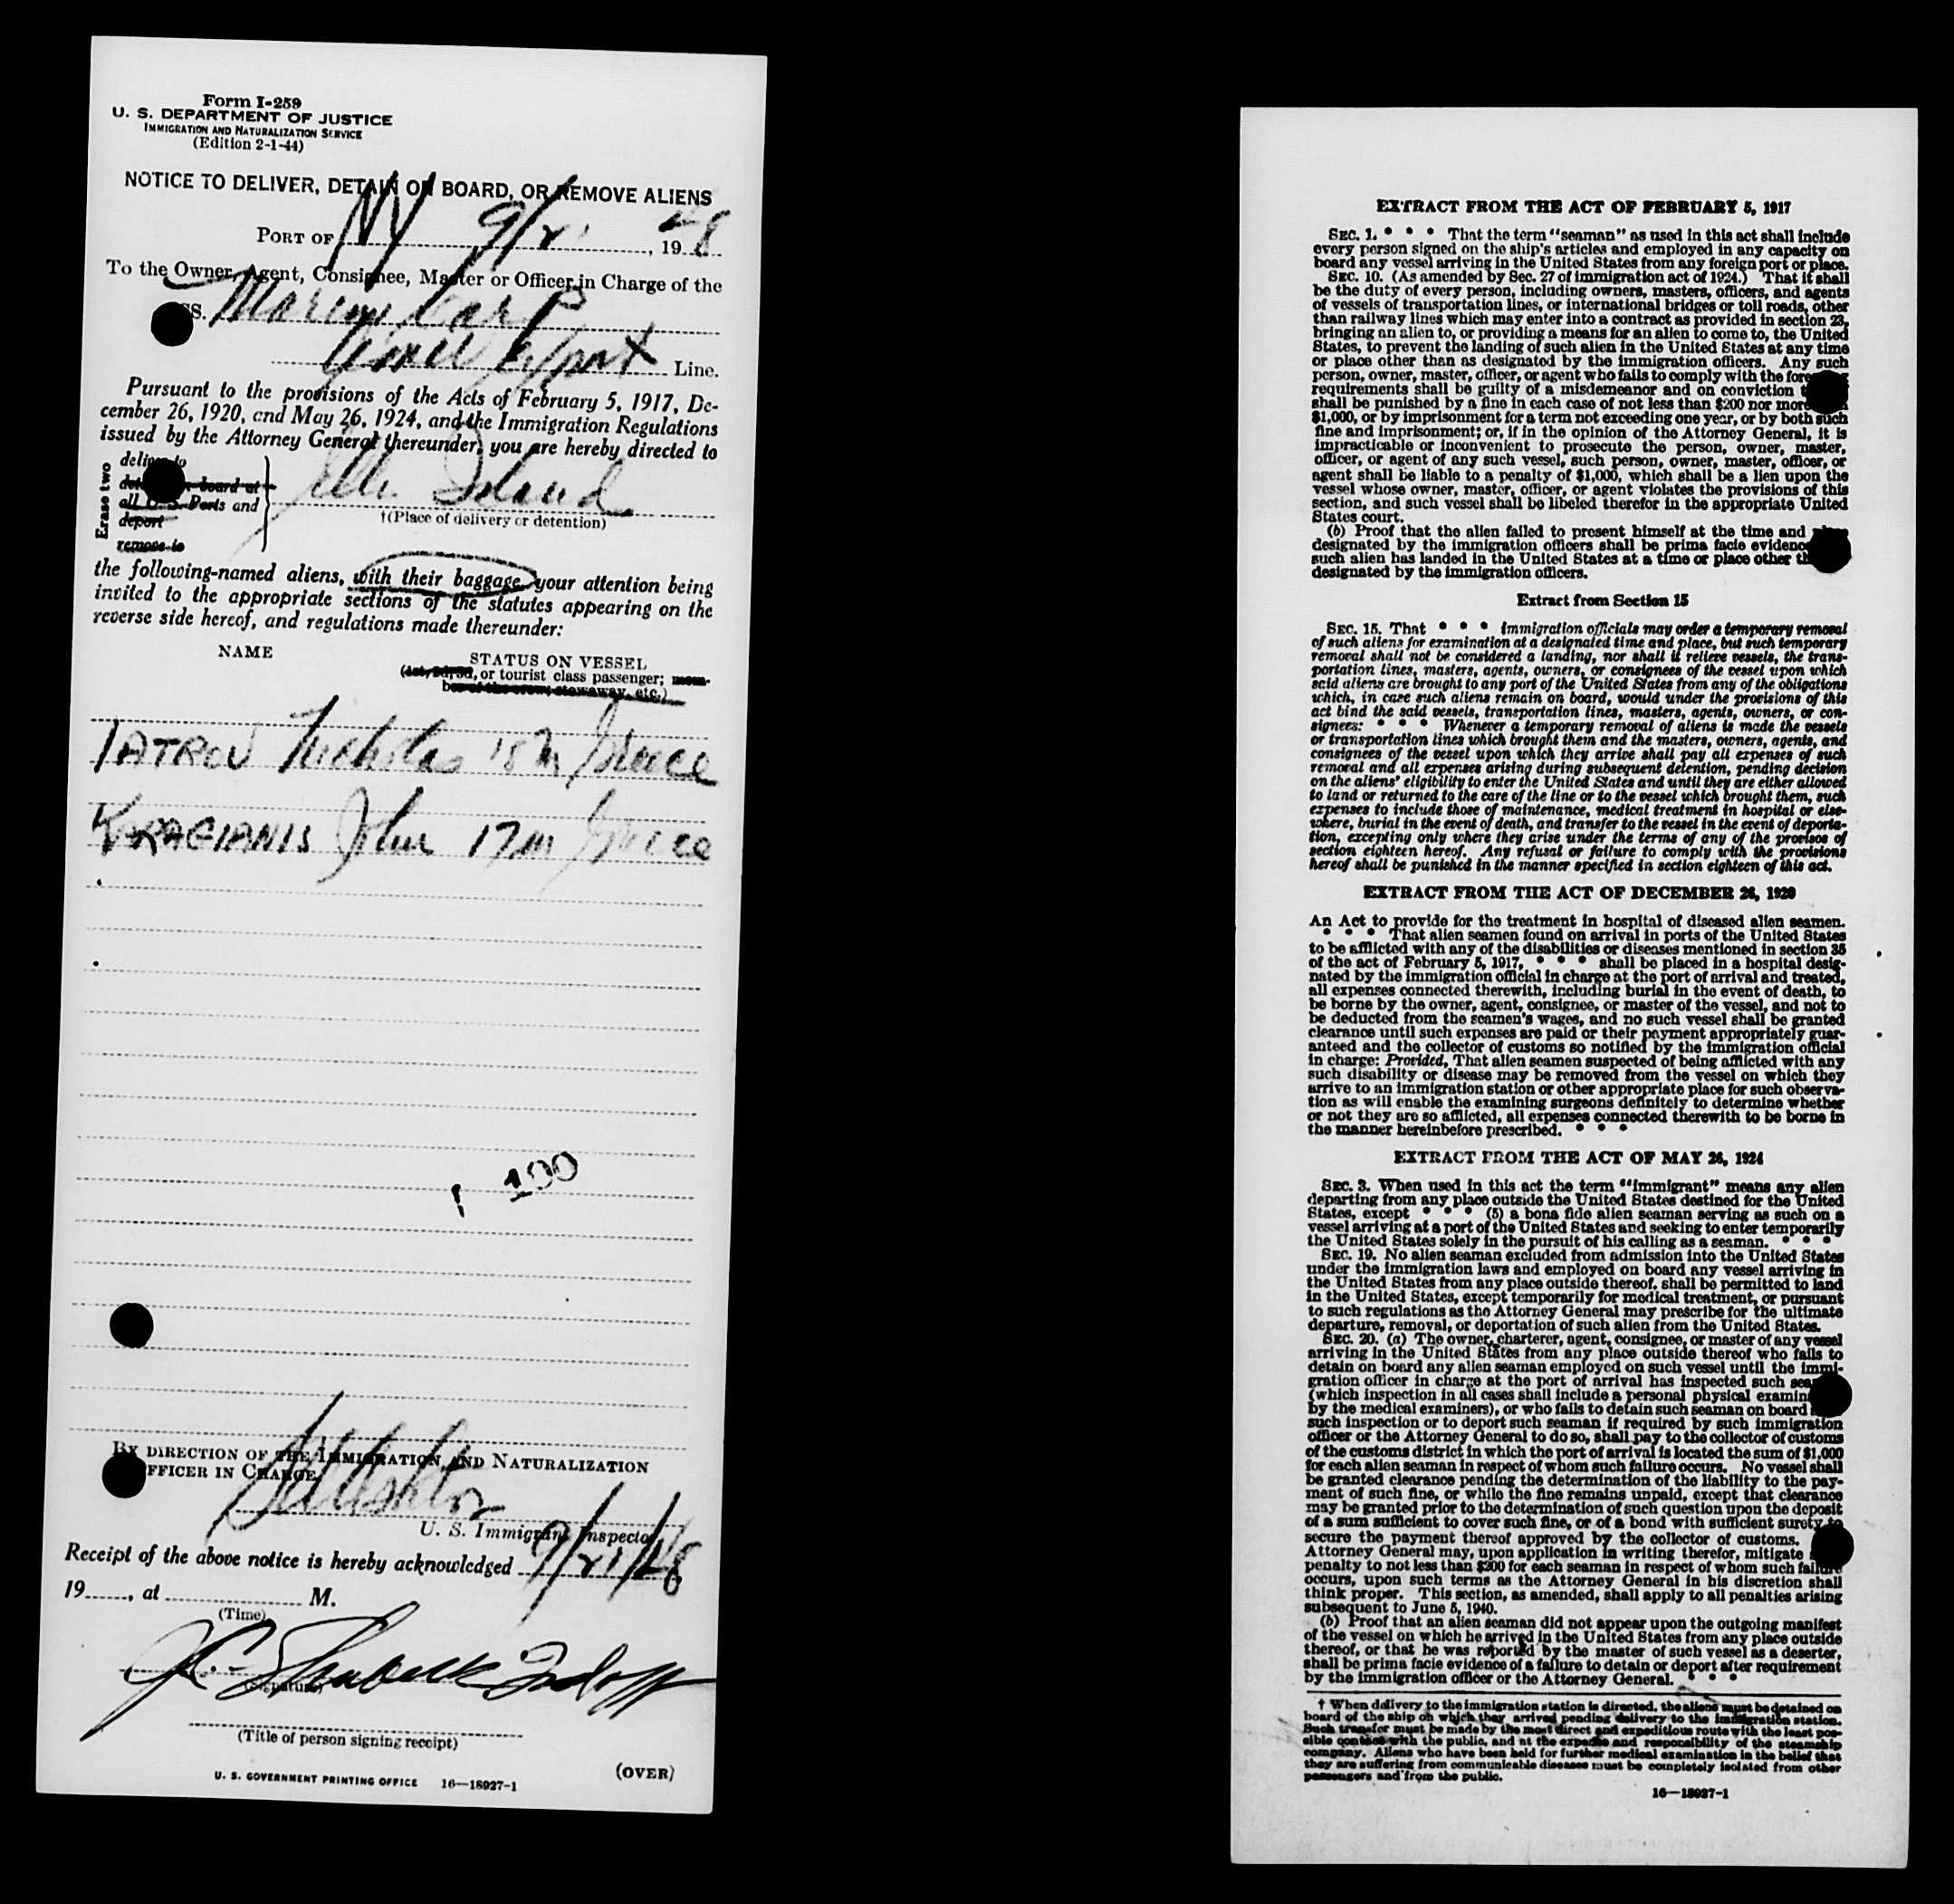 Form I-259
U. S. DEPARTMENT OF JUSTICE
IMMIGRATION AND NATURALIZATION SERVICE
(Edition 2-1-44)
NOTICE TO DELIVER, DETAIN ON BOARD, OR REMOVE ALIENS
PORT OF NY 9/21, 1948
To the Owner, Agent, Consignee, Master or Officer in Charge of the
SS. Marine Carp
Export Line.
Pursuant to the provisions of the Acts of February 5, 1917, De-
cember 26, 1920, and May 26, 1924, and the Immigration Regulations
issued by the Attorney General thereunder, you are hereby directed to
Erase two
deliver to
board at
all U. S. Ports and
deport
remove to
Ellis Island
†(Place of delivery or detention)
the following-named aliens, with their baggage, your attention being
invited to the appropriate sections of the statutes appearing on the
reverse side hereof, and regulations made thereunder:
NAME
STATUS ON VESSEL
(1st, 2d, 3d, or tourist class passenger; mem-
ber of the crew, stowaway, etc.)
IATROU Nicholas 18 m Greece
KARAGIANIS John 17 m Greece
100
BY DIRECTION OF THE IMMIGRATION AND NATURALIZATION
OFFICER IN CHARGE
U. S. Immigrant Inspector
Receipt of the above notice is hereby acknowledged 9/21/48
19......, at .................... M.
(Time)
J.C.
(Signature)
(Title of person signing receipt)
U. S. GOVERNMENT PRINTING OFFICE 16—18927-1
(OVER)
EXTRACT FROM THE ACT OF FEBRUARY 5, 1917
SEC. 1. * * * That the term "seaman" as used in this act shall include
every person signed on the ship's articles and employed in any capacity on
board any vessel arriving in the United States from any foreign port or place.
SEC. 10. (As amended by Sec. 27 of immigration act of 1924.) That it shall
be the duty of every person, including owners, masters, officers, and agents
of vessels of transportation lines, or international bridges or toll roads, other
than railway lines which may enter into a contract as provided in section 23,
bringing an alien to, or providing a means for an alien to come to, the United
States, to prevent the landing of such alien in the United States at any time
or place other than as designated by the immigration officers. Any such
person, owner, master, officer, or agent who fails to comply with the
requirements shall be guilty of a misdemeanor and on conviction
shall be punished by a fine in each case of not less than $200 nor more
$1,000, or by imprisonment for a term not exceeding one year, or by both such
fine and imprisonment; or, if in the opinion of the Attorney General, it is
impracticable or inconvenient to prosecute the person, owner, master,
officer, or agent of any such vessel, such person, owner, master, officer, or
agent shall be liable to a penalty of $1,000, which shall be a lien upon the
vessel whose owner, master, officer, or agent violates the provisions of this
section, and such vessel shall be libeled therefor in the appropriate United
States court.
(b) Proof that the alien failed to present himself at the time and place
designated by the immigration officers shall be prima facie evidence
such alien has landed in the United States at a time or place other
designated by the immigration officers.
Extract from Section 15
SEC. 15. That * * * immigration officials may order a temporary removal
of such aliens for examination at a designated time and place, but such temporary
removal shall not be considered a landing, nor shall it relieve vessels, the trans-
portation lines, masters, agents, owners, or consignees of the vessel upon which
said aliens are brought to any port of the United States from any of the obligations
which, in case such aliens remain on board, would under the provisions of this
act bind the said vessels, transportation lines, masters, agents, owners, or con-
signees: * * * Whenever a temporary removal of aliens is made the vessels
or transportation lines which brought them and the masters, owners, agents, and
consignees of the vessel upon which they arrive shall pay all expenses of such
removal and all expenses arising during subsequent detention, pending decision
on the aliens' eligibility to enter the United States and until they are either allowed
to land or returned to the care of the line or to the vessel which brought them, such
expenses to include those of maintenance, medical treatment in hospital or else-
where, burial in the event of death, and transfer to the vessel in the event of deporta-
tion, excepting only where they arise under the terms of any of the provisos of
section eighteen hereof. Any refusal or failure to comply with the provisions
hereof shall be punished in the manner specified in section eighteen of this act.
EXTRACT FROM THE ACT OF DECEMBER 26, 1920
An Act to provide for the treatment in hospital of diseased alien seamen.
* * * That alien seamen found on arrival in ports of the United States
to be afflicted with any of the disabilities or diseases mentioned in section 35
of the act of February 5, 1917, * * * shall be placed in a hospital desig-
nated by the immigration official in charge at the port of arrival and treated,
all expenses connected therewith, including burial in the event of death, to
be borne by the owner, agent, consignee, or master of the vessel, and not to
be deducted from the seamen's wages, and no such vessel shall be granted
clearance until such expenses are paid or their payment appropriately guar-
anteed and the collector of customs so notified by the immigration official
in charge: Provided, That alien seamen suspected of being afflicted with any
such disability or disease may be removed from the vessel on which they
arrive to an immigration station or other appropriate place for such observa-
tion as will enable the examining surgeons definitely to determine whether
or not they are so afflicted, all expenses connected therewith to be borne in
the manner hereinbefore prescribed. * * *
EXTRACT FROM THE ACT OF MAY 26, 1924
SEC. 3. When used in this act the term "immigrant" means any alien
departing from any place outside the United States destined for the United
States, except * * * (5) a bona fide alien seaman serving as such on a
vessel arriving at a port of the United States and seeking to enter temporarily
the United States solely in the pursuit of his calling as a seaman. * * *
SEC. 19. No alien seaman excluded from admission into the United States
under the immigration laws and employed on board any vessel arriving in
the United States from any place outside thereof, shall be permitted to land
in the United States, except temporarily for medical treatment, or pursuant
to such regulations as the Attorney General may prescribe for the ultimate
departure, removal, or deportation of such alien from the United States.
SEC. 20. (a) The owner, charterer, agent, consignee, or master of any vessel
arriving in the United States from any place outside thereof who fails to
detain on board any alien seaman employed on such vessel until the immi-
gration officer in charge at the port of arrival has inspected such
(which inspection in all cases shall include a personal physical
by the medical examiners), or who fails to detain such seaman on board
such inspection or to deport such seaman if required by such immigration
officer or the Attorney General to do so, shall pay to the collector of customs
of the customs district in which the port of arrival is located the sum of $1,000
for each alien seaman in respect of whom such failure occurs. No vessel shall
be granted clearance pending the determination of the liability to the pay-
ment of such fine, or while the fine remains unpaid, except that clearance
may be granted prior to the determination of such question upon the deposit
of a sum sufficient to cover such fine, or of a bond with sufficient surety to
secure the payment thereof approved by the collector of customs.
Attorney General may, upon application in writing therefor, mitigate
penalty to not less than $200 for each seaman in respect of whom such failure
occurs, upon such terms as the Attorney General in his discretion shall
think proper. This section, as amended, shall apply to all penalties arising
subsequent to June 5, 1940.
(b) Proof that an alien seaman did not appear upon the outgoing manifest
of the vessel on which he arrived in the United States from any place outside
thereof, or that he was reported by the master of such vessel as a deserter,
shall be prima facie evidence of a failure to detain or deport after requirement
by the immigration officer or the Attorney General. * * *
† When delivery to the immigration station is directed, the aliens must be detained on
board of the ship on which they arrived pending delivery to the immigration station.
Such transfer must be made by the most direct and expeditious route with the least pos-
sible contact with the public, and at the expense and responsibility of the steamship
company. Aliens who have been held for further medical examination in the belief that
they are suffering from communicable diseases must be completely isolated from other
passengers and from the public.
16—18927-1